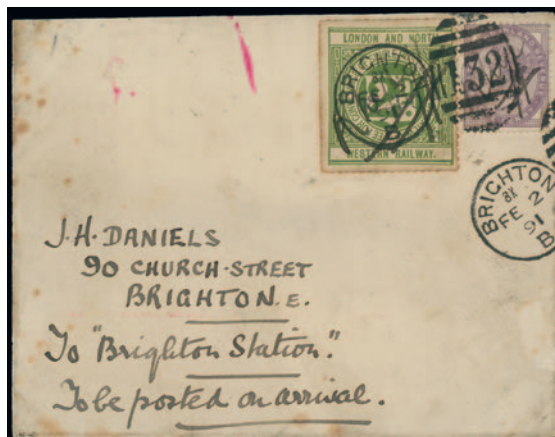 LONDON AND NORTH
WESTERN RAILWAY.
BRIGHTON
132
BRIGHTON
8X
FE 2
91
B
J.H. DANIELS
90 CHURCH-STREET
BRIGHTON. E.
To "Brighton Station."
To be posted on arrival.